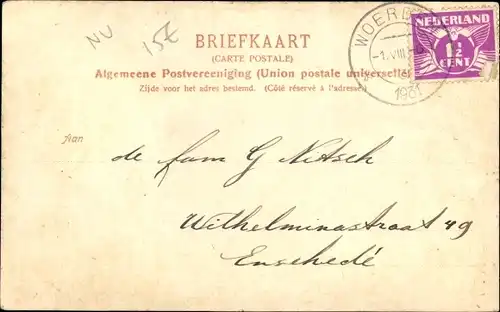 NV 15€
BRIEFKAART
(CARTE POSTALE)
Algemeene Postvereeniging (Union postale universelle)
Zijde voor het adres bestemd. (Côté réservé à l'adresse.)
NEDERLAND
1½
CENT
WOERD
1.VIII
1931
Aan
de fam G Nitsch
Wilhelminastraat 49
Enschedé